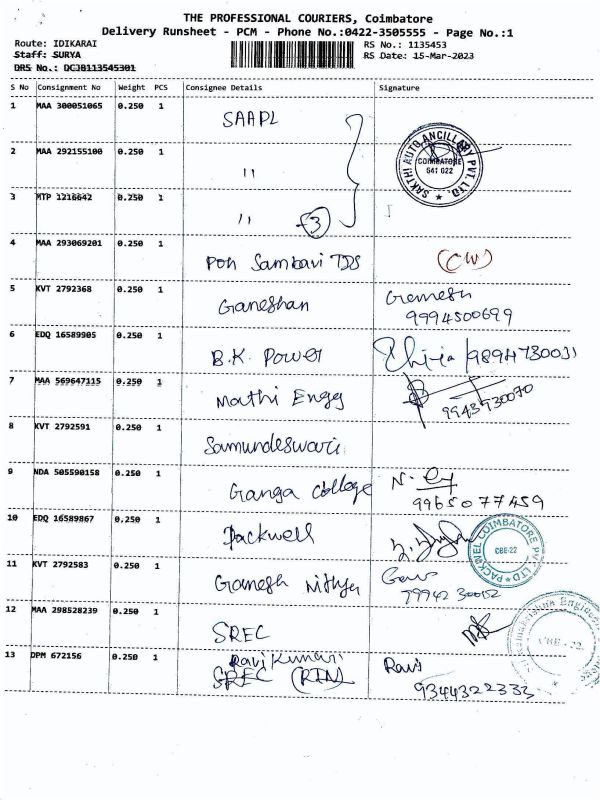 THE PROFESSIONAL COURIERS, Coimbatore
Delivery Runsheet - PCM - Phone No.:0422-3505555 - Page No.:1
Route: IDIKARAI
RS No.: 1135453
Staff: SURYA
RS Date: 15-Mar-2023
DRS No.: DCJB113545301
S No Consignment No Weight PCS Consignee Details Signature
1 MAA 300051065 0.250 1 SAAPL
SAKTHI AUTO ANCILLARY PVT. LTD.
COIMBATORE
641 022
2 MAA 292155100 0.250 1 "
3 MTP 1216642 0.250 1 " (3)
4 MAA 293069201 0.250 1 Pon Sambavi TDS (CW)
5 KVT 2792368 0.250 1 Ganeshan Gamesh
9994500699
6 EDQ 16589905 0.250 1 B.K. Power 9894730031
7 MAA 569647115 0.250 1 Mathi Engg
9943930070
8 KVT 2792591 0.250 1 Samundeswari
9 NDA 505590158 0.250 1 Ganga College
9965077459
10 EDQ 16589867 0.250 1 Packwell
PACKWEL COIMBATORE PVT. LTD
CBE-22
11 KVT 2792583 0.250 1 Ganesh Nithya
7994230052
12 MAA 298528239 0.250 1 SREC
CBE - 22.
13 DPM 672156 0.250 1 Ravi Kumar Ravi
SREC
9344322333